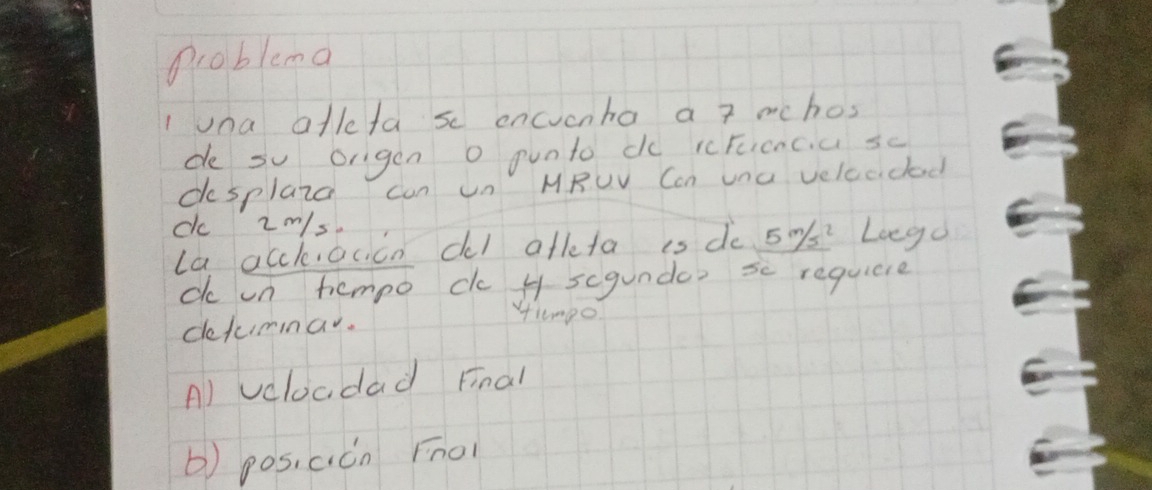 Problema
1 una atleta se encuentra a 7 metros
de su origen o punto de referencia se
desplaza con un MRUV Con una velocidad
de 2 m/s.
La aceleración del atleta es de 5 m/s² Luego
de un tiempo de 4 segundos se requiere
tiempo
determinar.
A) velocidad Final
b) posición Final